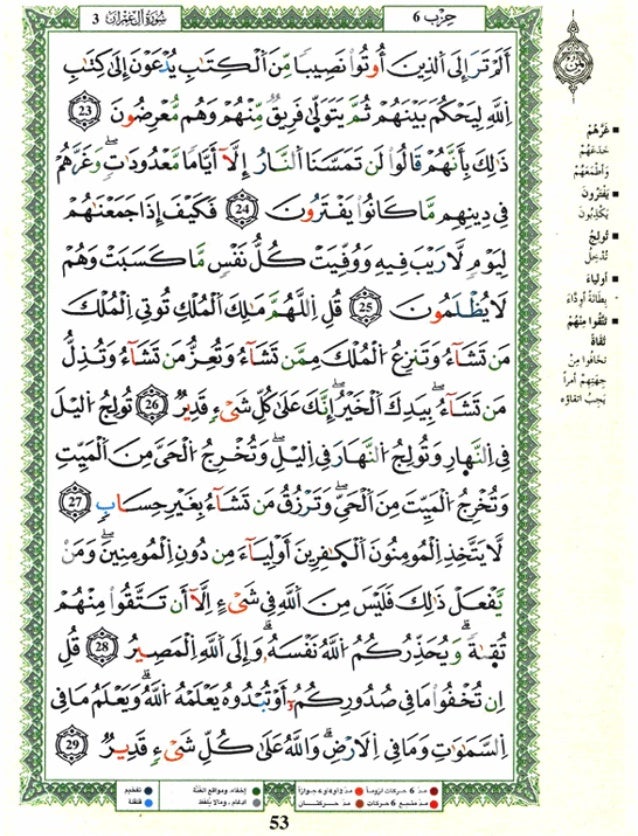 حِزْب 6
سُورَةُ آلِ عِمْرَان 3
أَلَمْ تَرَ إِلَى اَلذِينَ أُوتُواْ نَصِيباً مِّنَ اَلْكِتَٰبِ يُدْعَوْنَ إِلَىٰ كِتَٰبِ
اِللَّهِ لِيَحْكُمَ بَيْنَهُمْ ثُمَّ يَتَوَلَّىٰ فَرِيقٌ مِّنْهُمْ وَهُم مُّعْرِضُونَ 23
ذَٰلِكَ بِأَنَّهُمْ قَالُواْ لَن تَمَسَّنَا اَلنَّارُ إِلَّآ أَيَّاماً مَّعْدُودَٰتٍ وَغَرَّهُمْ
فِي دِينِهِم مَّا كَانُواْ يَفْتَرُونَ 24 فَكَيْفَ إِذَا جَمَعْنَٰهُمْ
لِيَوْمٍ لَّا رَيْبَ فِيهِ وَوُفِّيَتْ كُلُّ نَفْسٍ مَّا كَسَبَتْ وَهُمْ
لَا يُظْلَمُونَ 25 قُلِ اِللَّهُمَّ مَٰلِكَ اَلْمُلْكِ تُوتِي اِلْمُلْكَ
مَن تَشَآءُ وَتَنزِعُ اُلْمُلْكَ مِمَّن تَشَآءُ وَتُعِزُّ مَن تَشَآءُ وَتُذِلُّ
مَن تَشَآءُ بِيَدِكَ اَلْخَيْرُ إِنَّكَ عَلَىٰ كُلِّ شَيْءٍ قَدِيرٌ 26 تُولِجُ اُليْلَ
فِي اِلنَّهارِ وَتُولِجُ اُلنَّهَارَ فِي اِليْلِ وَتُخْرِجُ اُلْحَيَّ مِنَ اَلْمَيِّتِ
وَتُخْرِجُ اُلْمَيِّتَ مِنَ اَلْحَيِّ وَتَرْزُقُ مَن تَشَآءُ بِغَيْرِ حِسَابٍ 27
لَّا يَتَّخِذِ اِلْمُومِنُونَ اَلْكٰفِرِينَ أَوْلِيَآءَ مِن دُونِ اِلْمُومِنِينَ وَمَنْ
يَّفْعَلْ ذَٰلِكَ فَلَيْسَ مِنَ اَللَّهِ فِي شَيْءٍ إِلَّآ أَن تَتَّقُواْ مِنْهُمْ
تُقَىٰةً وَيُحَذِّرُكُمُ اُللَّهُ نَفْسَهُۥ وَإِلَى اَللَّهِ اِلْمَصِيرُ 28 قُلِ
اِن تُخْفُواْ مَا فِي صُدُورِكُمُۥٓ أَوْ تُبْدُوهُ يَعْلَمْهُ اُللَّهُ وَيَعْلَمُ مَا فِي
اِلسَّمَٰوَٰتِ وَمَا فِي اِلَارْضِ وَاللَّهُ عَلَىٰ كُلِّ شَيْءٍ قَدِيرٌ 29
غَرَّهُمْ
خَدَعَهُمْ
وَأَطْمَعَهُمْ
يَفْتَرُونَ
يَكْذِبُونَ
تُولِجُ
تُدْخِلُ
أَولياءَ
بِطَانَةً أَوِدَّاءَ
تَتَّقوا مِنْهُمْ
تُقَاةً
تخافُوا مِنْ
جِهَتِهِمْ أمراً
يَجِبُ اتقاؤه
مدّ 6 حركات لزوماً مدّ 2 او 4 او 6 جوازاً إخفاء، ومواقع الغنّة تفخيم
مدّ مشبع 6 حركات مدّ حركتان ادغام، وما لا يلفظ قلقلة
53